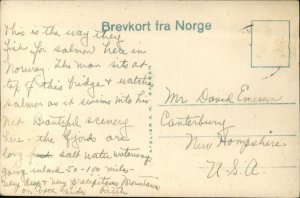 Brevkort fra Norge
This is the way they
fish for salmon here in
Norway. The man sits at
top of this bridge & watches
salmon as it swims into his
Net. Beautiful scenery
here - the fjords are
long salt water waterways
going inland 50-100 miles-
very deep & very precipitous Mountains
on both sides
Mr David Emerson
Canterbury
New Hampshire
U.S.A.